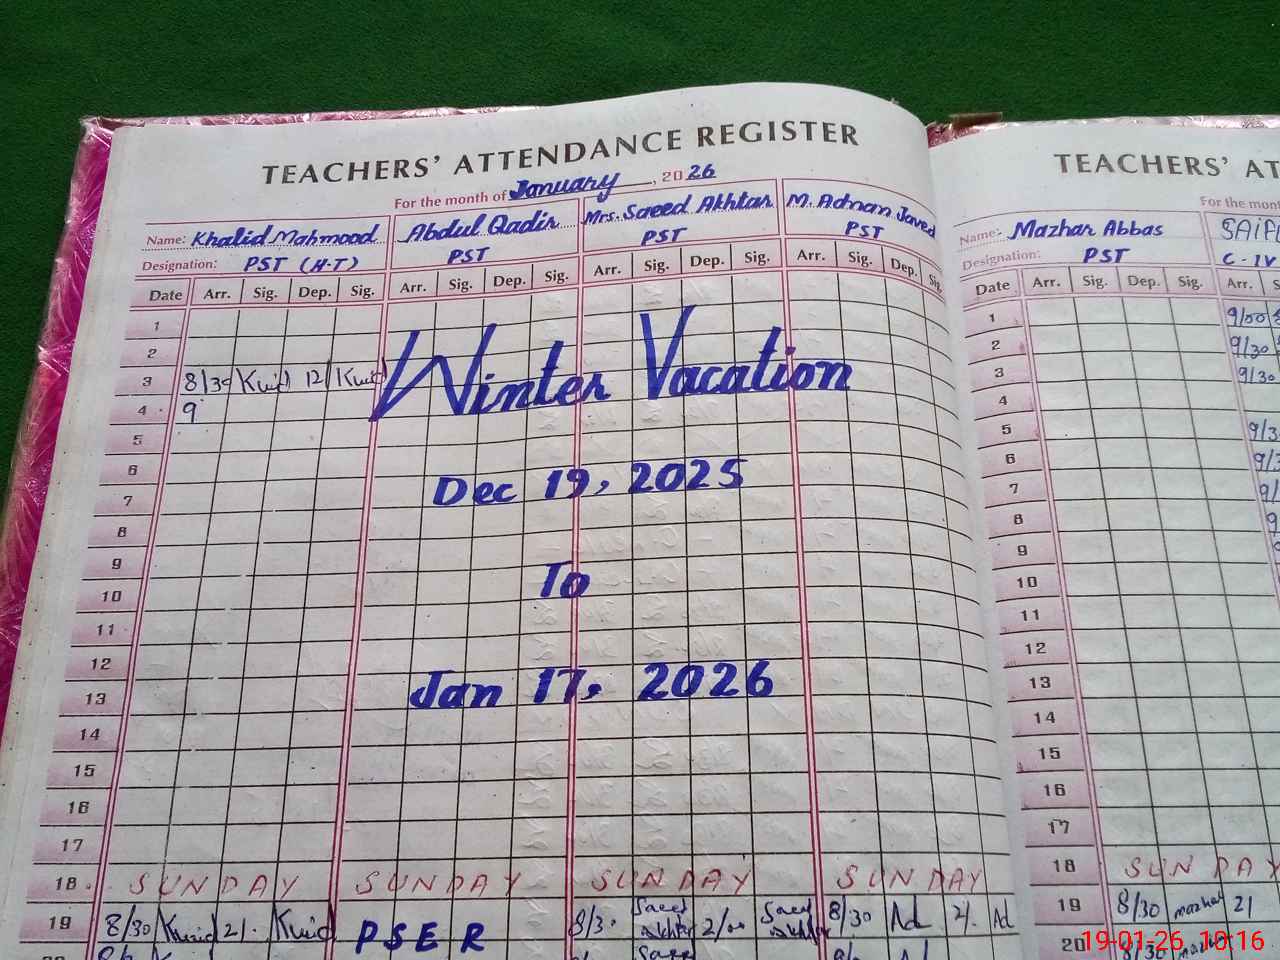 TEACHERS' ATTENDANCE REGISTER
For the month of January, 2026
Name: Khalid Mahmood Abdul Qadir Mrs. Saeed Akhtar M. Adnan Javed
Designation: PST (H-T) PST PST PST
Date Arr. Sig. Dep. Sig. Arr. Sig. Dep. Sig. Arr. Sig. Dep. Sig. Arr. Sig. Dep. Sig.
1
2
3 8/30 12/
4 9
Winter Vacation
5
6
7
Dec 19, 2025
8
9
10
To
11
12
13
Jan 17, 2026
14
15
16
17
18 SUNDAY SUNDAY SUNDAY SUNDAY
19 8/30 2/. PSER 8/3. Saeed Akhtar 2/00 Saeed Akhtar 8/30 Ad 2/. Ad
TEACHERS' AT
For the mo
Name: Mazhar Abbas SAIF
Designation: PST C-IV
Date Arr. Sig. Dep. Sig. Arr.
1 9/00
2 9/30
3 9/30
4
5 9/3
6
7
8
9
10
11
12
13
14
15
16
17
18 SUNDAY
19 8/30 mazhar 2/
20 8/30
19-01-26 10:16